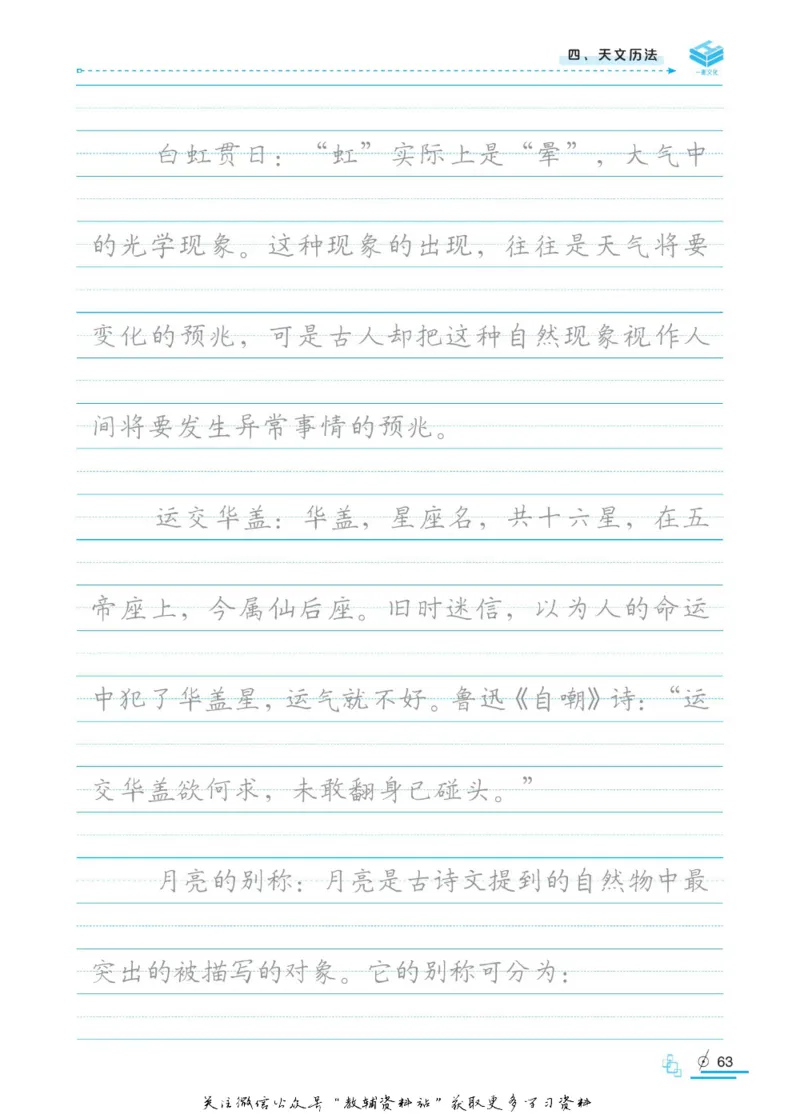 四、天文历法
一本文化
白虹贯日：“虹”实际上是“晕”，大气中
的光学现象。这种现象的出现，往往是天气将要
变化的预兆，可是古人却把这种自然现象视作人
间将要发生异常事情的预兆。
运交华盖：华盖，星座名，共十六星，在五
帝座上，今属仙后座。旧时迷信，以为人的命运
中犯了华盖星，运气就不好。鲁迅《自嘲》诗：“运
交华盖欲何求，未敢翻身已碰头。”
月亮的别称：月亮是古诗文提到的自然物中最
突出的被描写的对象。它的别称可分为：
63
关注微信公众号“教辅资料站”获取更多学习资料